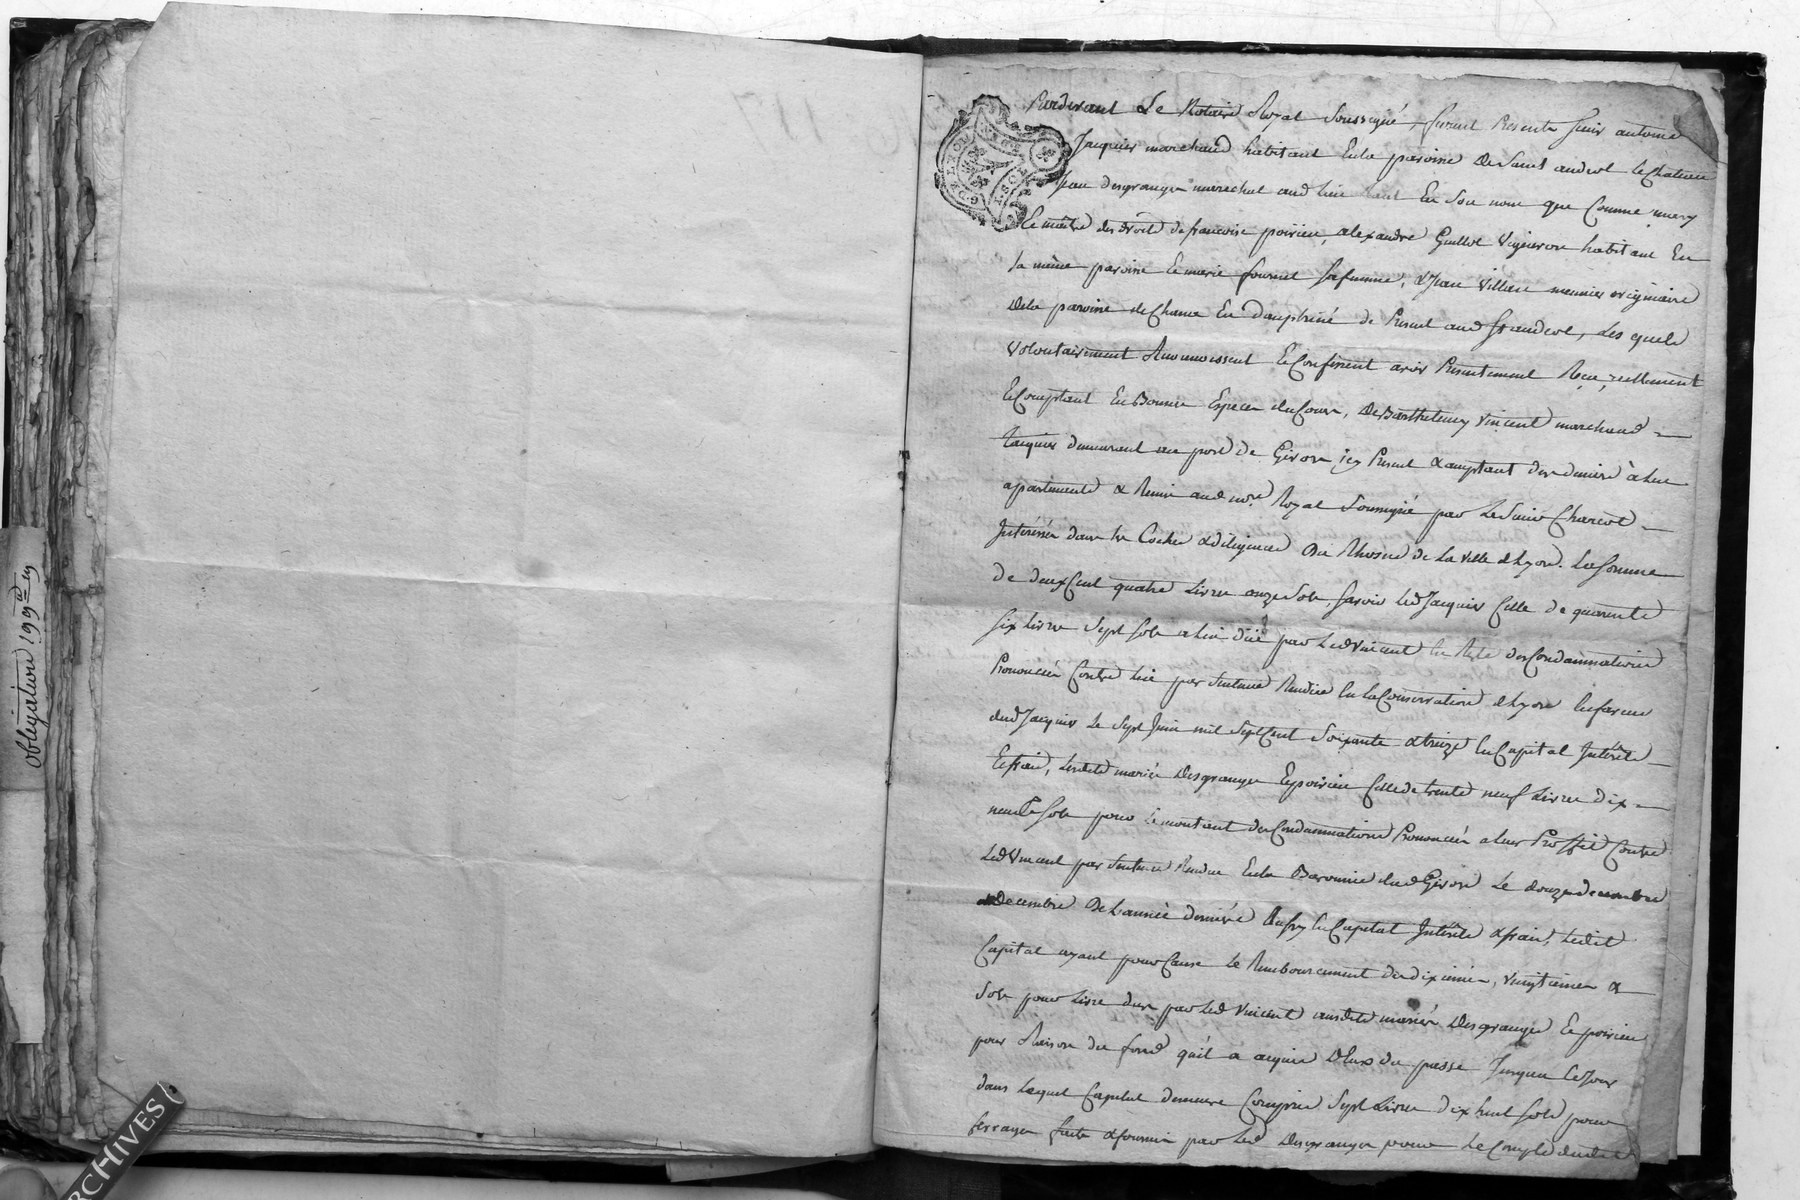 obligation 199 en
ARCHIVES
Pardevant Le Notaire Royal Soussigné, furent Presents Sieur antoine
Jacquier marchand habitant En la paroisse De Saint andeol le Chateau
Jean desgranges marechal aud lieu tant En Son nom que Comme mary
Le maitre des droits de francoise poirieu, alexandre Guillot Vigneron habitant En
la même paroisse Et marie fournel sa femme, & Jean Villars meunier originaire
De la paroisse de En Dauphiné de Present aud St andeol, Les quels
Volontairement Reconnoissent Et Confessent avoir Presentement Reçu, reellement
Et Comptant En Bonnes Especes du Cours, De Barthelemy Vincent marchand
demeurant au port de Givors icy Present & acceptant des deniers à lui
apartenants & Remis aud nore Royal Soussigné par Le Sieur Charcot
Interessé dans les Coches & diligences Du Rhosne de La Ville de Lyon. La Somme
de deux Cent quatre Livres onze Sols, Savoir Led Jacquier Celle de quarante
six Livres Sept Sols a lui düe par Led Vincent En Reste des Condamnations
Prononcées Contre lui par Sentence Rendüe En la Conservation de Lyon En faveur
dud Jacquier Le Sept Juin mil Sept Cent Soixante & treize En Capital Intérêts
Et frais, Lesdits mariés Desgranges Et poirieu Celle de trente neuf Livres dix
neuf Sols pour Le montant des Condamnations Prononcées a leur Proffit Contre
Led Vincent par Sentence Rendue En la Baronnie dud Givors Le douze decembre
Decembre De L'année derniére Aussy En Capital Intérêts & frais, Ledit
Capital ayant pour Cause Le Remboursement des dixiemes, Vingtiemes &
Sols pour Livre dus par Led Vincent ausdits mariés Desgranges Et poirieu
pour Raison du fond qu'il a acquis D'Eux du passé Jusqu'a Ce Jour
dans Lequel Capital demeure Compris Sept Livres dix huit Sols pour
ferrages faits & fournis par Led Desgranges pour Le Compte dudit